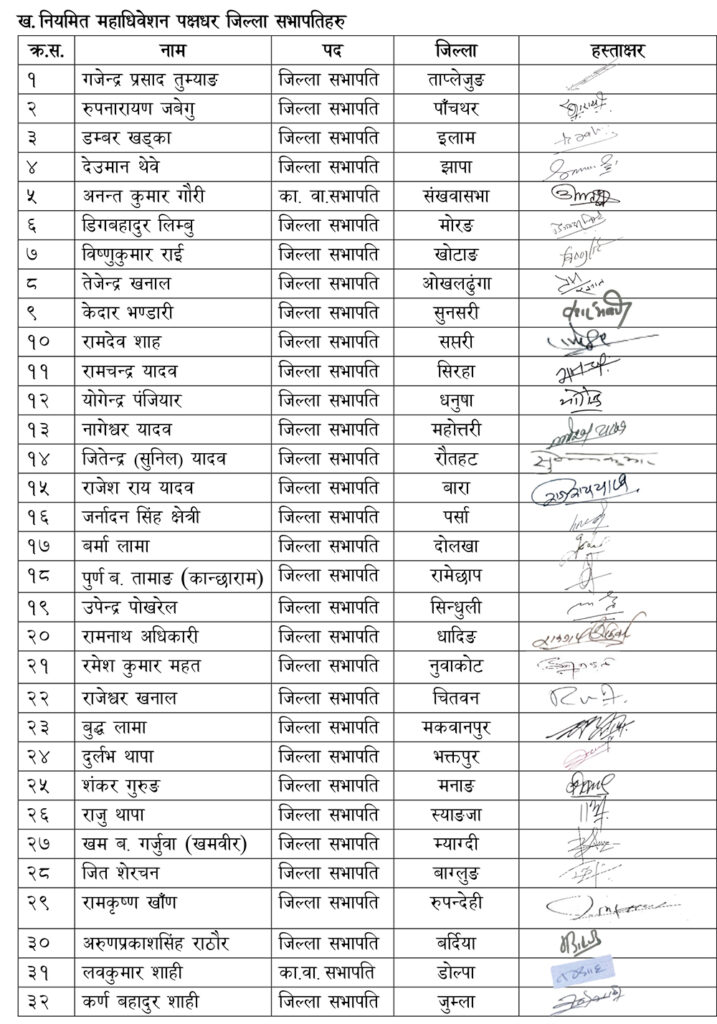 ख. नियमित महाधिवेशन पक्षधर जिल्ला सभापतिहरु
क्र.स. नाम पद जिल्ला हस्ताक्षर
१ गजेन्द्र प्रसाद तुम्याङ जिल्ला सभापति ताप्लेजुङ
२ रुपनारायण जबेगु जिल्ला सभापति पाँचथर
३ डम्बर खड्का जिल्ला सभापति इलाम
४ देउमान थेवे जिल्ला सभापति झापा
५ अनन्त कुमार गौरी का. वा.सभापति संखवासभा
६ डिगबहादुर लिम्बु जिल्ला सभापति मोरङ
७ विष्णुकुमार राई जिल्ला सभापति खोटाङ
८ तेजेन्द्र खनाल जिल्ला सभापति ओखलढुंगा
९ केदार भण्डारी जिल्ला सभापति सुनसरी
१० रामदेव शाह जिल्ला सभापति सप्तरी
११ रामचन्द्र यादव जिल्ला सभापति सिरहा
१२ योगेन्द्र पंजियार जिल्ला सभापति धनुषा
१३ नागेश्वर यादव जिल्ला सभापति महोत्तरी
१४ जितेन्द्र (सुनिल) यादव जिल्ला सभापति रौतहट
१५ राजेश राय यादव जिल्ला सभापति बारा
१६ जर्नादन सिंह क्षेत्री जिल्ला सभापति पर्सा
१७ बर्मा लामा जिल्ला सभापति दोलखा
१८ पुर्ण ब. तामाङ (कान्छाराम) जिल्ला सभापति रामेछाप
१९ उपेन्द्र पोखरेल जिल्ला सभापति सिन्धुली
२० रामनाथ अधिकारी जिल्ला सभापति धादिङ
२१ रमेश कुमार महत जिल्ला सभापति नुवाकोट
२२ राजेश्वर खनाल जिल्ला सभापति चितवन
२३ बुद्ध लामा जिल्ला सभापति मकवानपुर
२४ दुर्लभ थापा जिल्ला सभापति भक्तपुर
२५ शंकर गुरुङ जिल्ला सभापति मनाङ
२६ राजु थापा जिल्ला सभापति स्याङजा
२७ खम ब. गर्जुवा (खमवीर) जिल्ला सभापति म्याग्दी
२८ जित शेरचन जिल्ला सभापति बाग्लुङ
२९ रामकृष्ण खाँण जिल्ला सभापति रुपन्देही
३० अरुणप्रकाशसिंह राठौर जिल्ला सभापति बर्दिया
३१ लवकुमार शाही का.वा. सभापति डोल्पा
३२ कर्ण बहादुर शाही जिल्ला सभापति जुम्ला